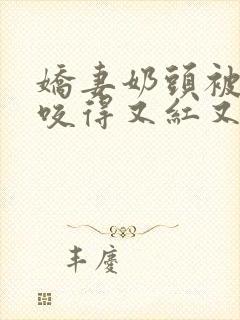 嬌妻奶頭被
咬得又紅又
丰慶